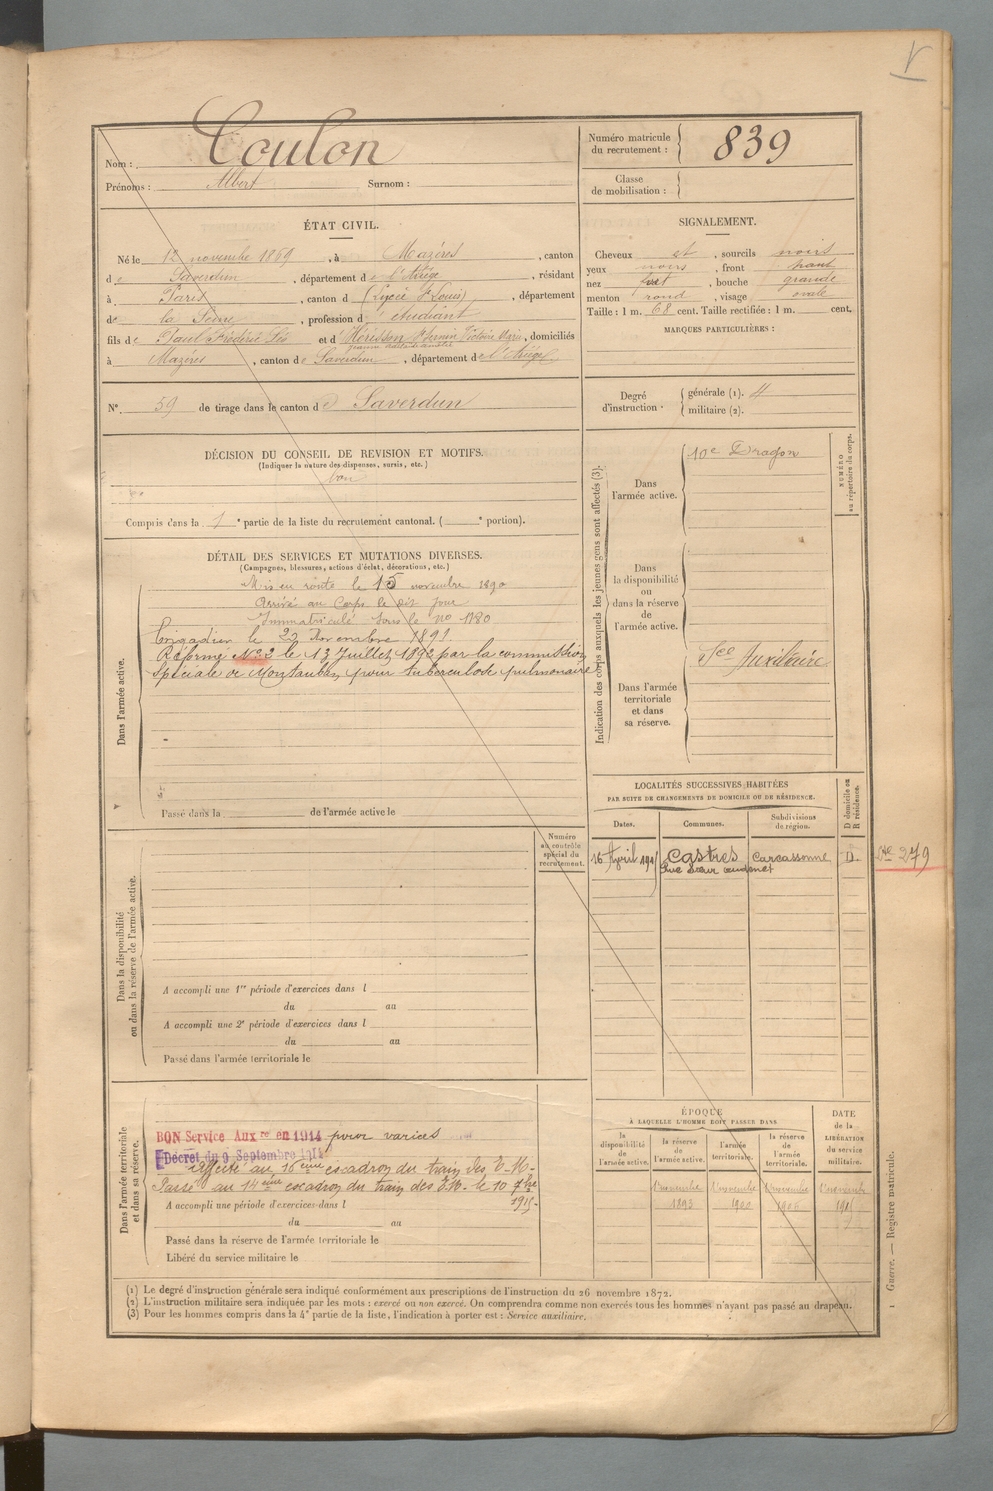 Nom : Coulon
Prénoms : Albert Surnom :
Numéro matricule du recrutement : 839
Classe de mobilisation :
ÉTAT CIVIL.
Né le 12 novembre 1869, à Mazères, canton
de Saverdun, département de l'Ariège, résidant
à Paris, canton d (Lycée St Louis), département
de la Seine, profession d'étudiant
fils de Paul Frédéric Léo et d'Hérisson Victoire, domiciliés
à Mazères, canton de Saverdun, département de l'Ariège
N° 59 de tirage dans le canton de Saverdun
SIGNALEMENT.
Cheveux et, sourcils noirs
yeux noirs, front haut
nez fort, bouche grande
menton rond, visage ovale
Taille : 1 m. 68 cent. Taille rectifiée : 1 m. cent.
MARQUES PARTICULIÈRES :
Degré d'instruction : générale (1). 4
militaire (2).
DÉCISION DU CONSEIL DE REVISION ET MOTIFS.
(Indiquer la nature des dispenses, sursis, etc.)
bon
Compris dans la 1e partie de la liste du recrutement cantonal. ( e portion).
DÉTAIL DES SERVICES ET MUTATIONS DIVERSES.
(Campagnes, blessures, actions d'éclat, décorations, etc.)
Dans l'armée active.
Mis en route le 15 novembre 1890
Arrivé au Corps le dit jour
Immatriculé sous le no 1180
Brigadier le novembre 1891
Réformé No 2 le 13 Juillet 1892 par la commission
Spéciale de Montauban pour tuberculose pulmonaire
Passé dans la de l'armée active le
Indication des corps auxquels les jeunes gens sont affectés (3).
NUMÉRO au répertoire du corps.
Dans l'armée active.
10e Dragon
Dans la disponibilité ou dans la réserve de l'armée active.
Dans l'armée territoriale et dans sa réserve.
Sce Auxiliaire
LOCALITÉS SUCCESSIVES HABITÉES
PAR SUITE DE CHANGEMENTS DE DOMICILE OU DE RÉSIDENCE.
Dates. Communes. Subdivisions de région. D domicile ou R résidence.
16 Avril Castres Carcassonne D. 279
Rue Sœur
Dans la disponibilité ou dans la réserve de l'armée active.
Numéro au contrôle spécial du recrutement.
A accompli une 1re période d'exercices dans l
du au
A accompli une 2e période d'exercices dans l
du au
Passé dans l'armée territoriale le
Dans l'armée territoriale et dans sa réserve.
BON Service Auxre en 1914 pour varices
Décret du 9 Septembre 1914
affecté au 16ème escadron du train des E.M-
Passé au 14ème escadron du train des E.M- le 10 7bre
1915-
A accompli une période d'exercices dans l
du au
Passé dans la réserve de l'armée territoriale le
Libéré du service militaire le
ÉPOQUE
À LAQUELLE L'HOMME DOIT PASSER DANS
DATE de la LIBÉRATION du service militaire.
la disponibilité de l'armée active. la réserve de l'armée active. l'armée territoriale. la réserve de l'armée territoriale.
1er novembre 1893 1er novembre 1900 1er novembre 1906 1er novembre
Guerre. — Registre matricule.
(1) Le degré d'instruction générale sera indiqué conformément aux prescriptions de l'instruction du 26 novembre 1872.
(2) L'instruction militaire sera indiquée par les mots : exercé ou non exercé. On comprendra comme non exercés tous les hommes n'ayant pas passé au drapeau.
(3) Pour les hommes compris dans la 4e partie de la liste, l'indication à porter est : Service auxiliaire.